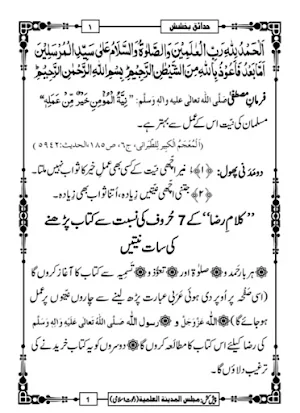 ۱ حدائقِ بخشش ۱
اَلْحَمْدُ لِلّٰهِ رَبِّ الْعٰلَمِيْنَ وَالصَّلٰوةُ وَالسَّلَامُ عَلٰى سَيِّدِ الْمُرْسَلِيْنَ
اَمَّا بَعْدُ فَاَعُوْذُ بِاللّٰهِ مِنَ الشَّيْطٰنِ الرَّجِيْمِ ؕ بِسْمِ اللّٰهِ الرَّحْمٰنِ الرَّحِيْمِ ؕ
فرمانِ مصطفٰے صلی اللہ تعالی علیہ واٰلہٖ وسلّم: ”نِيَّةُ الْمُؤْمِنِ خَيْرٌ مِّنْ عَمَلِهٖ“
مسلمان کی نیّت اس کے عمل سے بہتر ہے۔
(اَلْمُعْجَمُ الْكَبِير لِلطَّبَرانى، ج٦، ص١٨٥، الحديث: ٥٩٤٢)
دو مَدَنی پھول: ﴿۱﴾ بغیر اچھی نیّت کے کسی بھی عملِ خیر کا ثواب نہیں ملتا۔
﴿۲﴾ جتنی اچھی نیّتیں زِیادہ، اُتنا ثواب بھی زِیادہ۔
”کلامِ رضا“ کے 7 حُروف کی نسبت سے کتاب پڑھنے
کی سات نیتیں
ہر بار حمد و صلوٰۃ اور تعوُّذ و تَسمِیہ سے کتاب کا آغاز کروں گا
(اسی صَفْحَہ پر اُوپر دی ہوئی عَرَبی عبارت پڑھ لینے سے چاروں نیّتوں پر عمل
ہو جائے گا) اللہ عَزَّوَجَلَّ و رسول اللہ صلی اللہ تعالی علیہ واٰلہٖ وسلّم
کی رضا کیلئے اس کتاب کا مطالعہ کروں گا دوسروں کو یہ کتاب خریدنے کی
ترغیب دلاؤں گا۔
1 پیش کش: مجلس المدینۃ العلمیۃ (دعوتِ اسلامی) 1